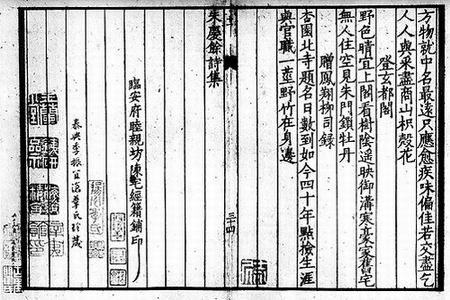 方物就中名最遠只應愈疾味偏佳若交盡乞
人人與采盡商山枳殼花
登玄都閣
野色晴宜上閣看樹陰遙映御溝寒豪家舊宅
無人住空見朱門鎖牡丹
贈鳳翔柳司錄
杏園北寺題名日數到如今四十年點撿生涯
與官職一莖野竹在身邊
三十四
臨安府睦親坊陳宅經籍鋪印
泰興季振宜滄葦氏珍藏
朱慶餘詩集